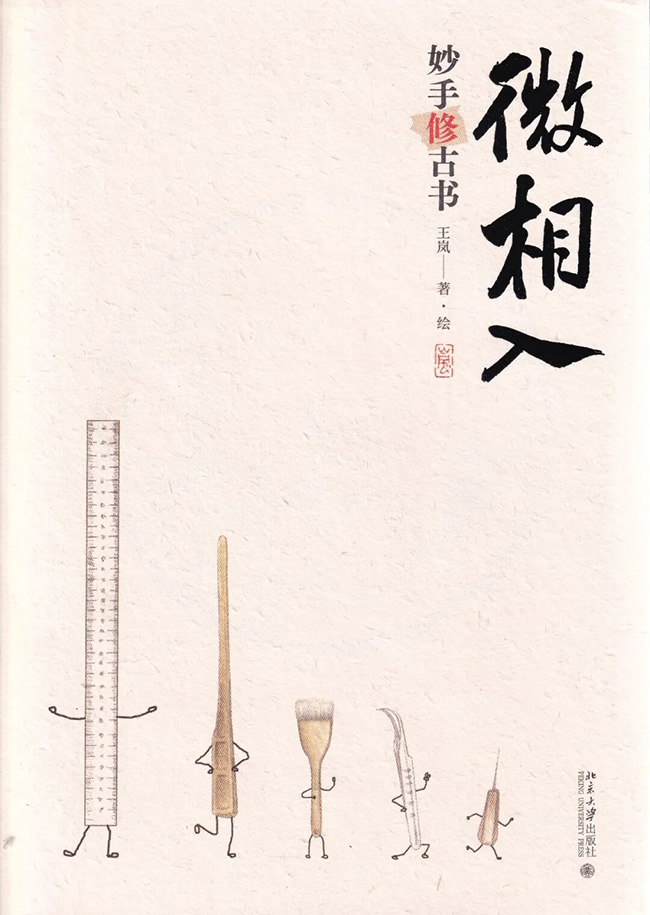 微相入
妙手修古书
王岚——著·绘
岚
北京大学出版社
PEKING UNIVERSITY PRESS